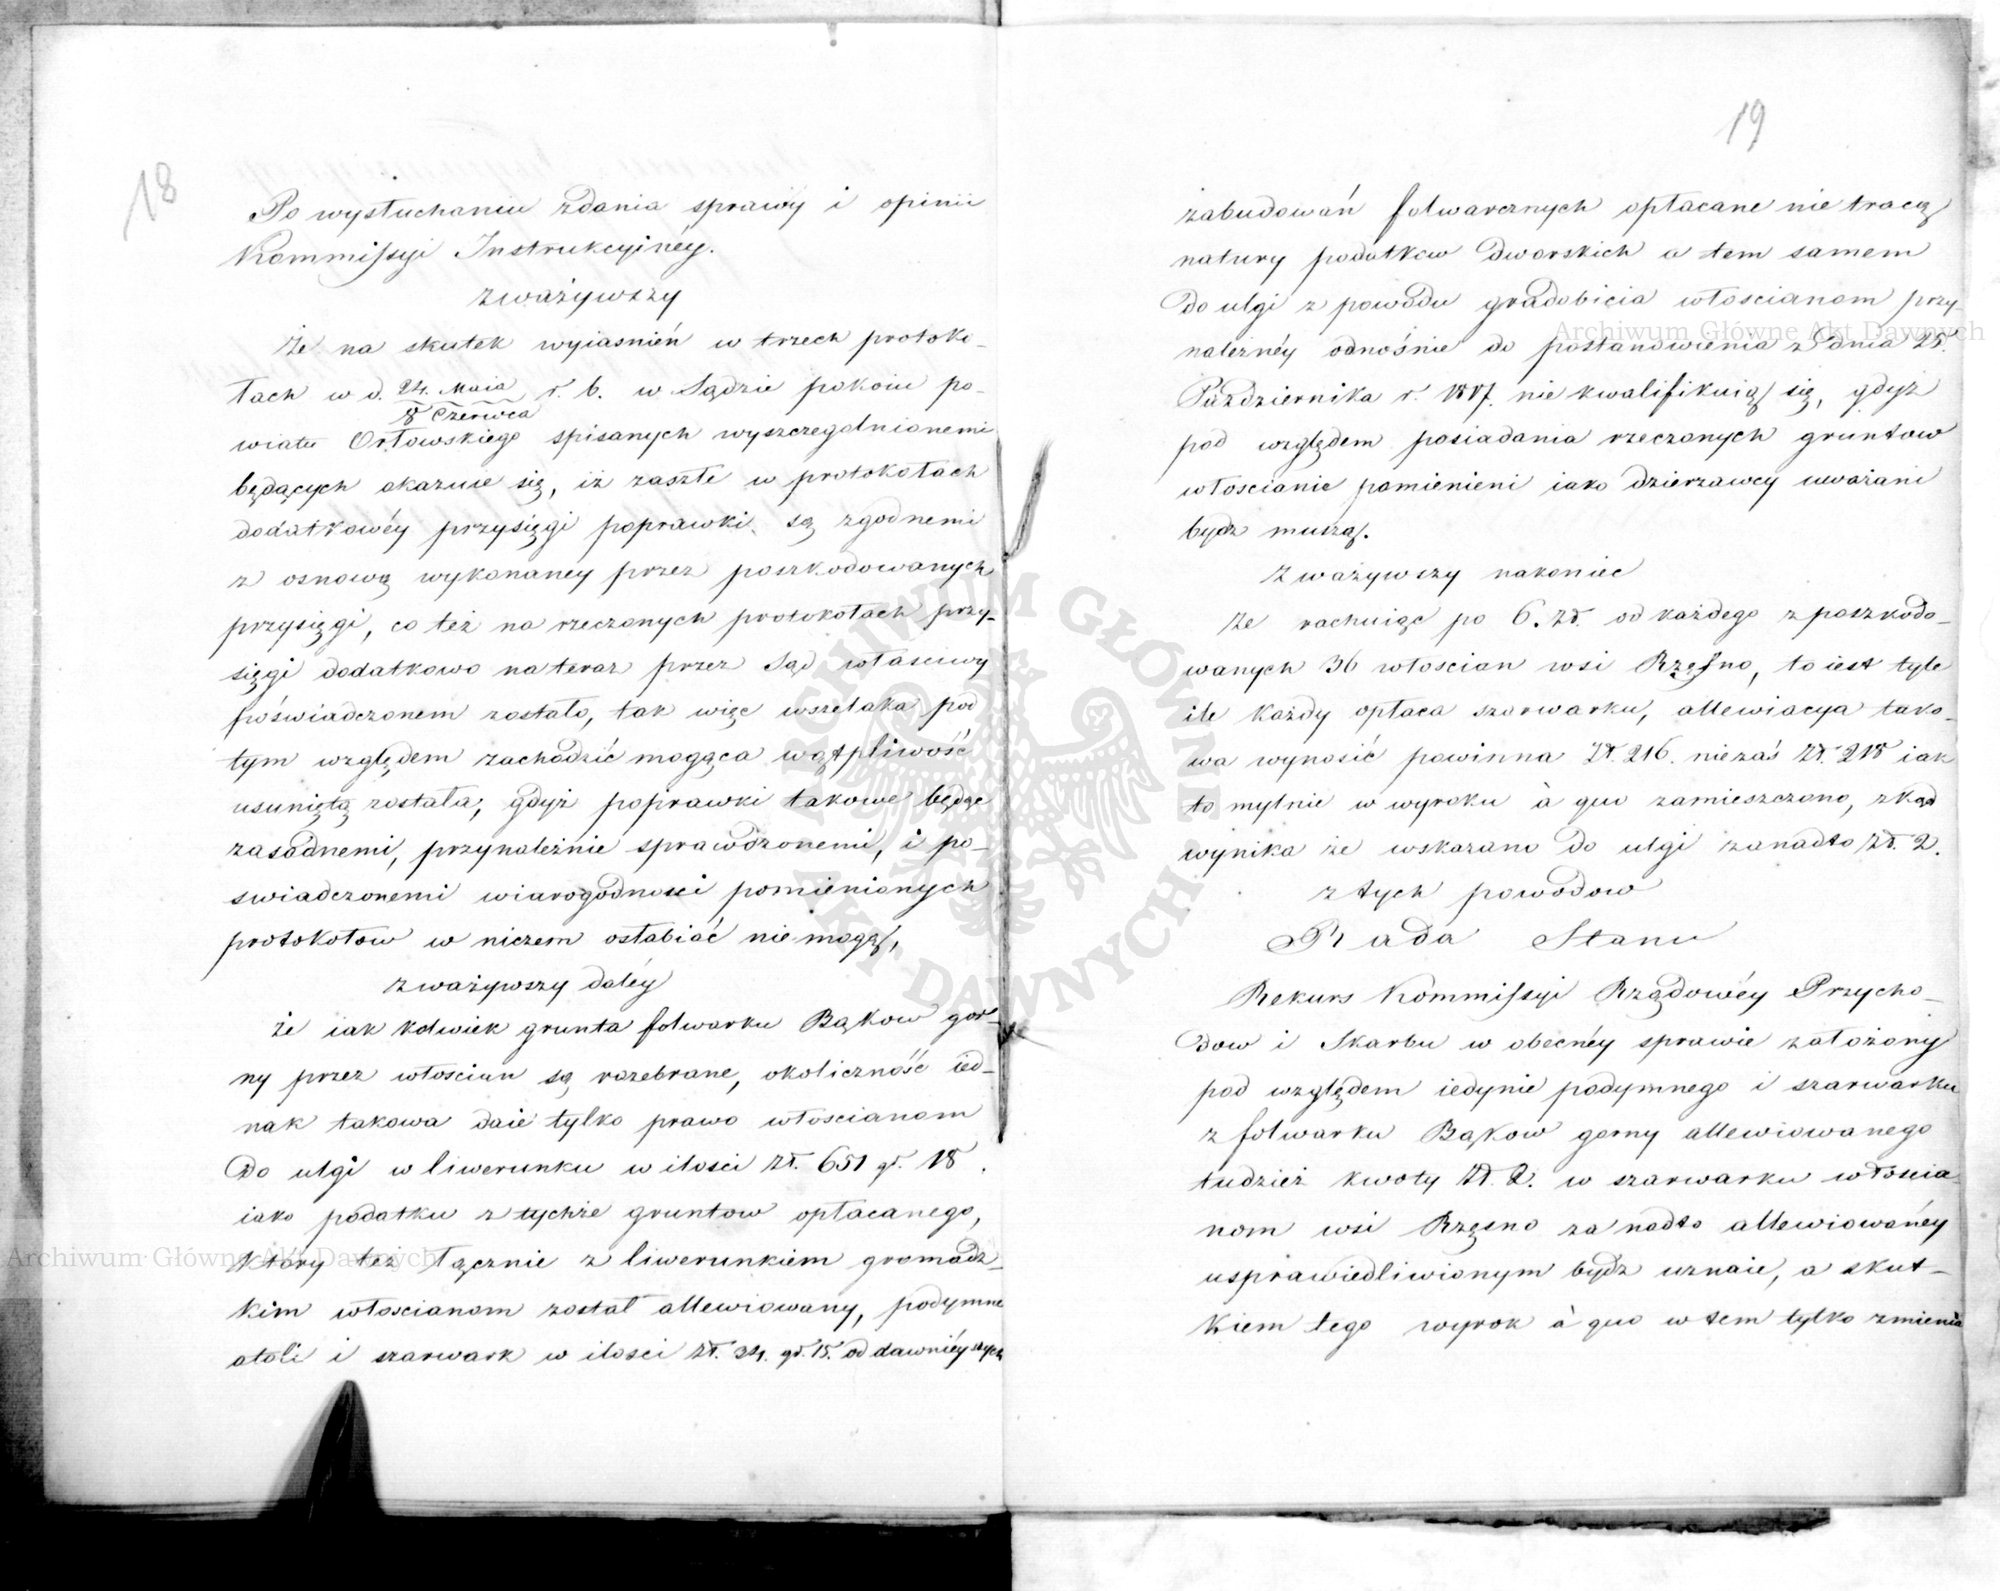 18
Po wysłuchaniu zdania sprawy i opinii
Kommissyi Instrukcyinéy.
zważywszy
Że na skutek wyiasnień w trzech protoko-
łach w d. 24. Maia r. b. w Sądzie pokoiu po-
8 Czerwca
wiatu Orłowskiego spisanych wyszczegolnionemi
będących okazuie się, iż zaszłe w protokołach
dodatkowéy przysięgi poprawki są zgodnemi
z osnową wykonaney przez poszkodowanych
przysięgi, co też na rzeczonych protokołach przy-
sięgi dodatkowo na teraz przez Sąd właściwy
poświadczonem zostało, tak więc wszelaka pod
tym względem zachodzić mogąca wątpliwość
usuniętą została, gdyż poprawki takowe będąc
zasadnemi, przynależnie sprawdzonemi, i po-
swiadczonemi wiarogodności pomienionych
protokołow w niczem osłabiać nie mogą,
zważywszy daléy
że iak kolwiek grunta folwarku Bąkow gor-
ny przez włościan są rozebrane, okoliczność ied-
nak takowa daie tylko prawo włościanom
do ulgi w liwerunku w ilości Zł. 651 gr. 18.
iako podatku z tychże gruntow opłacanego,
ktory też łącznie z liwerunkiem gromadz-
kim włościanom został allewiowany, podymne
atoli i szarwark w ilości Zł. 34. gr. 15. od dawniéyszych
19
zabudowań folwarcznych opłacane nie tracą
natury podatkow dworskich a tem samem
do ulgi z powodu gradobicia włoscianom przy-
należnéy odnośnie do postanowienia z dnia 25.
Października r. 1817. nie kwalifikuią się, gdyż
pod względem posiadania rzeczonych gruntow
włoscianie pomienieni iako dzierzawcy uważani
bydz muszą.
Zważywszy nakoniec
Że rachuiąc po 6. zł. od każdego z poszkodo-
wanych 36 włoscian wsi Rzęsno, to iest tyle
ile każdy opłaca szarwarku, allewiacya tako-
wa wynosić powinna Zł. 216. nie zaś Zł. 218 iak
to mylnie w wyroku à quo zamieszczono, zkąd
wynika że wskazano do ulgi zanadto Zł. 2.
z tych powodow
Rada Stanu
Rekurs Kommissyi Rządowéy Przycho-
dow i Skarbu w obecnéy sprawie założony
pod względem iedynie podymnego i szarwarku
z folwarku Bąkow gorny allewiowanego
tudzież kwoty Zł. 2. w szarwarku włościa-
nom wsi Rzęsno za nadto allewiowanéy
usprawiedliwionym bydz uznaie, a skut-
kiem tego wyrok à quo w tem tylko zmienia
Archiwum Główne Akt Dawnych
Archiwum Główne Akt Dawnych
ARCHIWUM GŁÓWNE AKT DAWNYCH